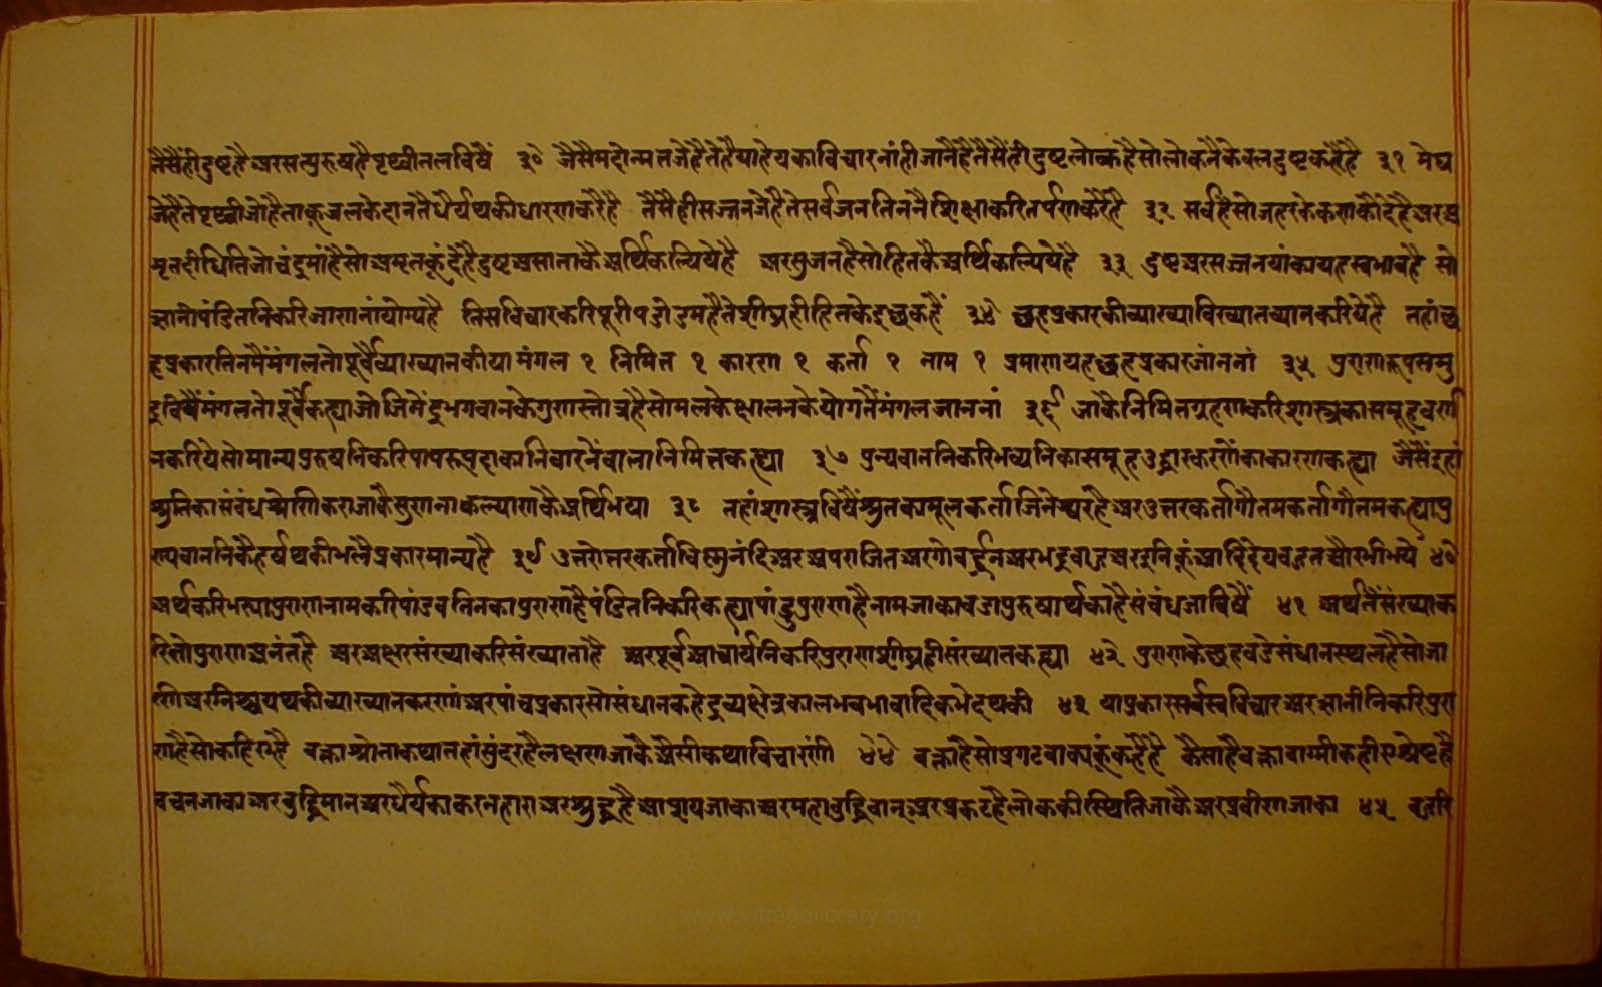 तैसैंहीदुष्टहैअरसत्पुरुषहैपृथ्वीतलविषैं ३० जैसैमहोन्मतजेहैतेहैयाहेयकाविचारनांहीजानैहैतैसैंहीदुष्टलोकहैसोलोकनैकेवलदुष्टकहैहै ३१ मेघ
जेहैतेपृथ्वीजोहैताकूजलकेदानतैधैर्यथकीधारणाकरैहै तैसैहीसज्जनजेहैतेसर्वजनतिननैशिक्षाकरितर्पणकरैहै ३२ सर्पहैसोजहरकेकणकौदेहैअरअ
मृतदीधितिजोचंद्रमांहैसोअमृतकूंदेहैदुष्टअसाताकैअर्थिकल्पियेहै अरसुजनहैसोहितकैअर्थिकल्पियेहै ३३ दुष्टअरसज्जनयांकायहस्वभावहै सो
ज्ञानीपंडितनिकरिजाणनांयोग्यहै तिसविचारकरिपूरीपडोहमहैतेशीघ्रहीहितकेइछुकहैं ३४ छहप्रकारकीव्याख्याविख्यातव्यानकरियेहै तहांछ
हप्रकारतिनमैंमंगलतोपूर्वैव्याख्यानकीया मंगल १ निमित्त १ कारण १ कर्ता १ नाम १ प्रमाणयहछहप्रकारजांननां ३५ पुराणरूपसमु
द्रविषैंमंगलतोपूर्वैकह्याजोजिनेंद्रभगवानकेगुणस्तोत्रहैसोमलकेक्षालनकेयोगतैंमंगलजाननां ३६ जाकैनिमितग्रहणकरिशास्त्रकासमूहवर्ण
नकरियेसोमान्यपुरुषनिकरिपापरूपग्रहाकानिवारनेंवालानिमित्तकह्या ३७ पुन्यवाननिकरिभव्यनिकासमूहउद्धारकरणेंकाकारणकह्या जैसैंइहां
श्रुतिकासंबंधश्रेणिकराजाकैसुणताकल्याणकैअर्थिभया ३८ तहांशास्त्रविषैंश्रुतकामूलकर्ताजिनेश्वरहैअरउत्तरकर्तागौतमकर्तागौतमकह्यापु
ण्यवाननिकैहर्षथकीभलैप्रकारमान्यहै ३९ उत्तरोत्तरकर्ताविष्णुनंदिअरअपराजितअरगोवर्द्धनअरभद्रबाहुअरइनिकूंआदिदेयबहुतऔरभीभये ४०
अर्थकरिभस्यापुराणनामकरिपांडवतिनकापुराणहैपंडितनिकरिकह्यापांडुपुराणहैनामजाकाबडापुरुषार्थकाहैसंबंधजाविषैं ४१ अर्थतैंसंख्याक
रितोपुराणअनंतहै अरअक्षरसंख्याकरिसंख्याताहै अरपूर्वआचार्यनिकरिपुराणशीघ्रहीसंख्यानकह्या ४२ पुराणकेछहबडेसंधानस्थलहैसोजा
णिअरनिश्चयथकीव्याख्यानकरणांअरपांचप्रकारसोसंधानकहेद्रव्यक्षेत्रकालभवभावादिकभेदथकी ४३ याप्रकारसर्वस्वविचारअरज्ञानीनिकरिपुरा
णहैसोकहिएहै वक्ताश्रोताकथातहांसुंदरहैलक्षणजाकैऐसीकथाविचारणी ४४ वक्ताहैसोप्रगटवाक्यकूंकहैहै कैसाहैवक्तावाग्मीकहीएश्रेष्टहै
वचनजाकाअरबुद्धिमानअरधैर्यकाकरनहाराअरशुद्धहैआशयजाकाअरमहाबुद्धिवानअरप्रकटहैलोककीस्थितिजाकैअरप्रवीणजाका ४५ बहुरि